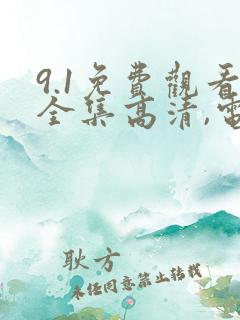 9.1免費觀看
全集高清,電
耿方
未经同意禁止转载